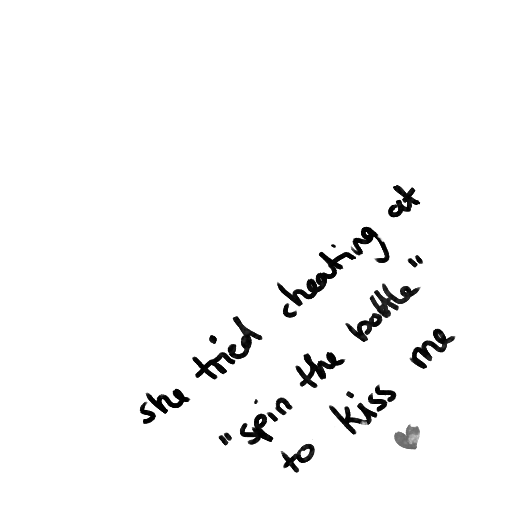 she tried cheating at
"spin the bottle"
to kiss me